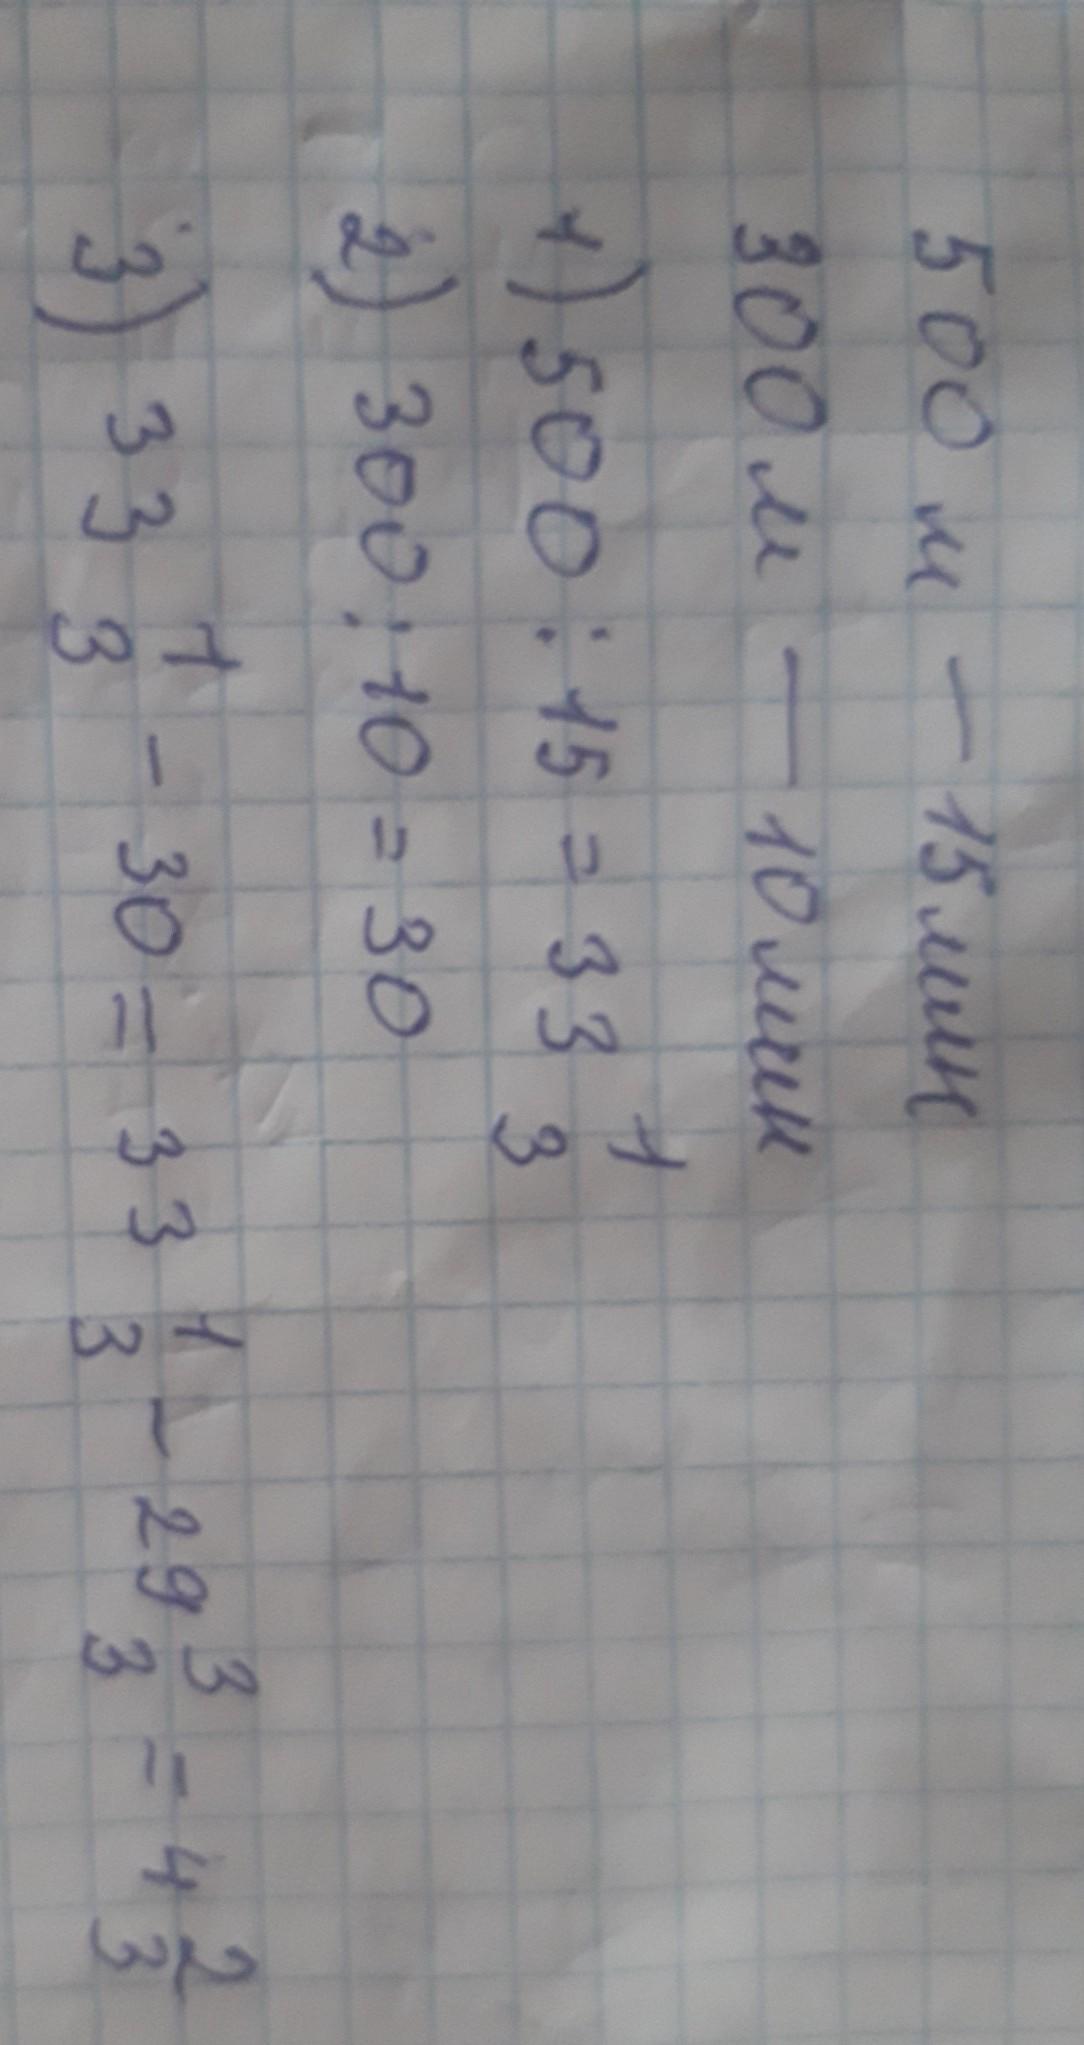 500 м — 15 мин
300 м — 10 мин
1) 500 : 15 = 33 1/3
2) 300 : 10 = 30
3) 33 1/3 - 30 = 33 1/3 - 29 3/3 = 4 2/3